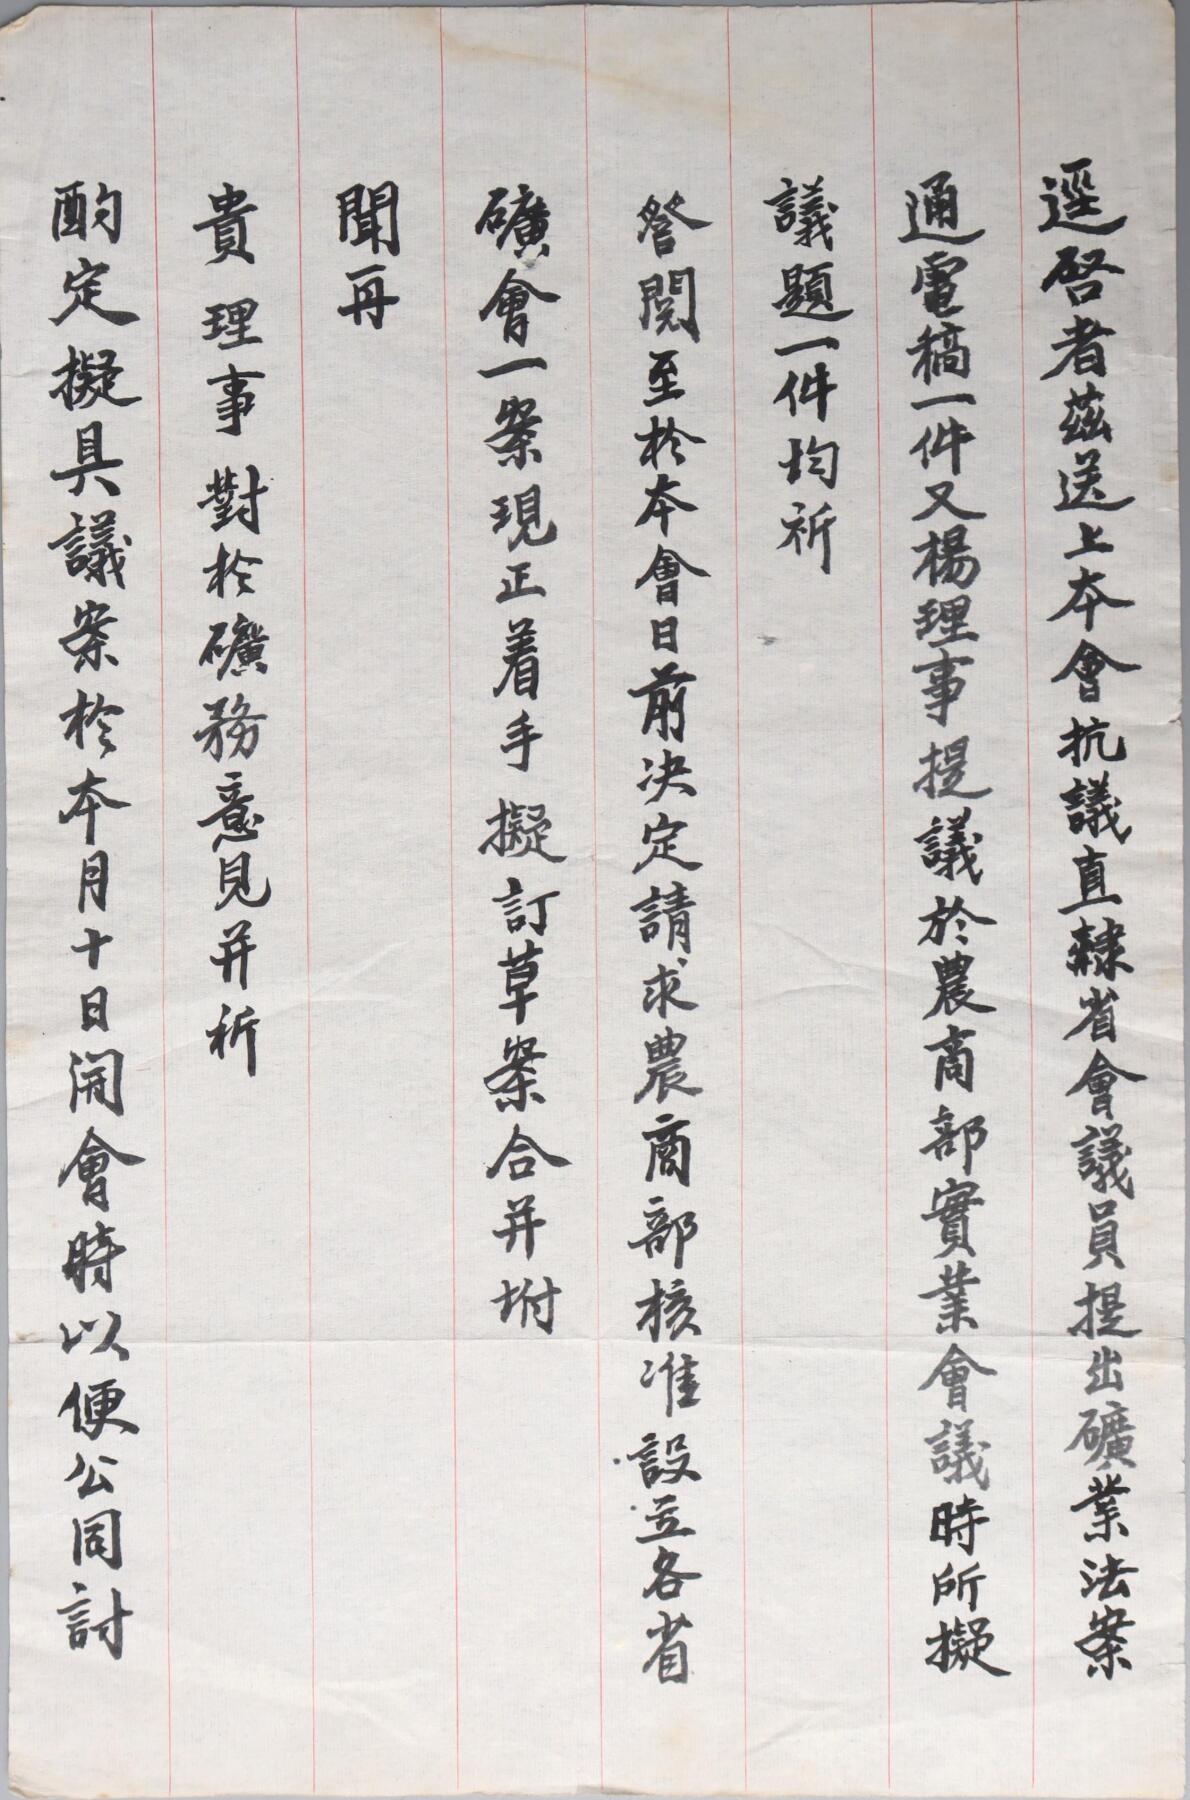 逕啓者茲送上本會抗議直隸省會議員提出礦業法案
通電稿一件又楊理事提議於農商部實業會議時所擬
議題一件均祈
詧閱至於本會日前決定請求農商部核准設立各省
礦會一案現正着手擬訂草案合并坿
聞再
貴理事對於礦務意見并祈
酌定擬具議案於本月十日開會時以便公同討